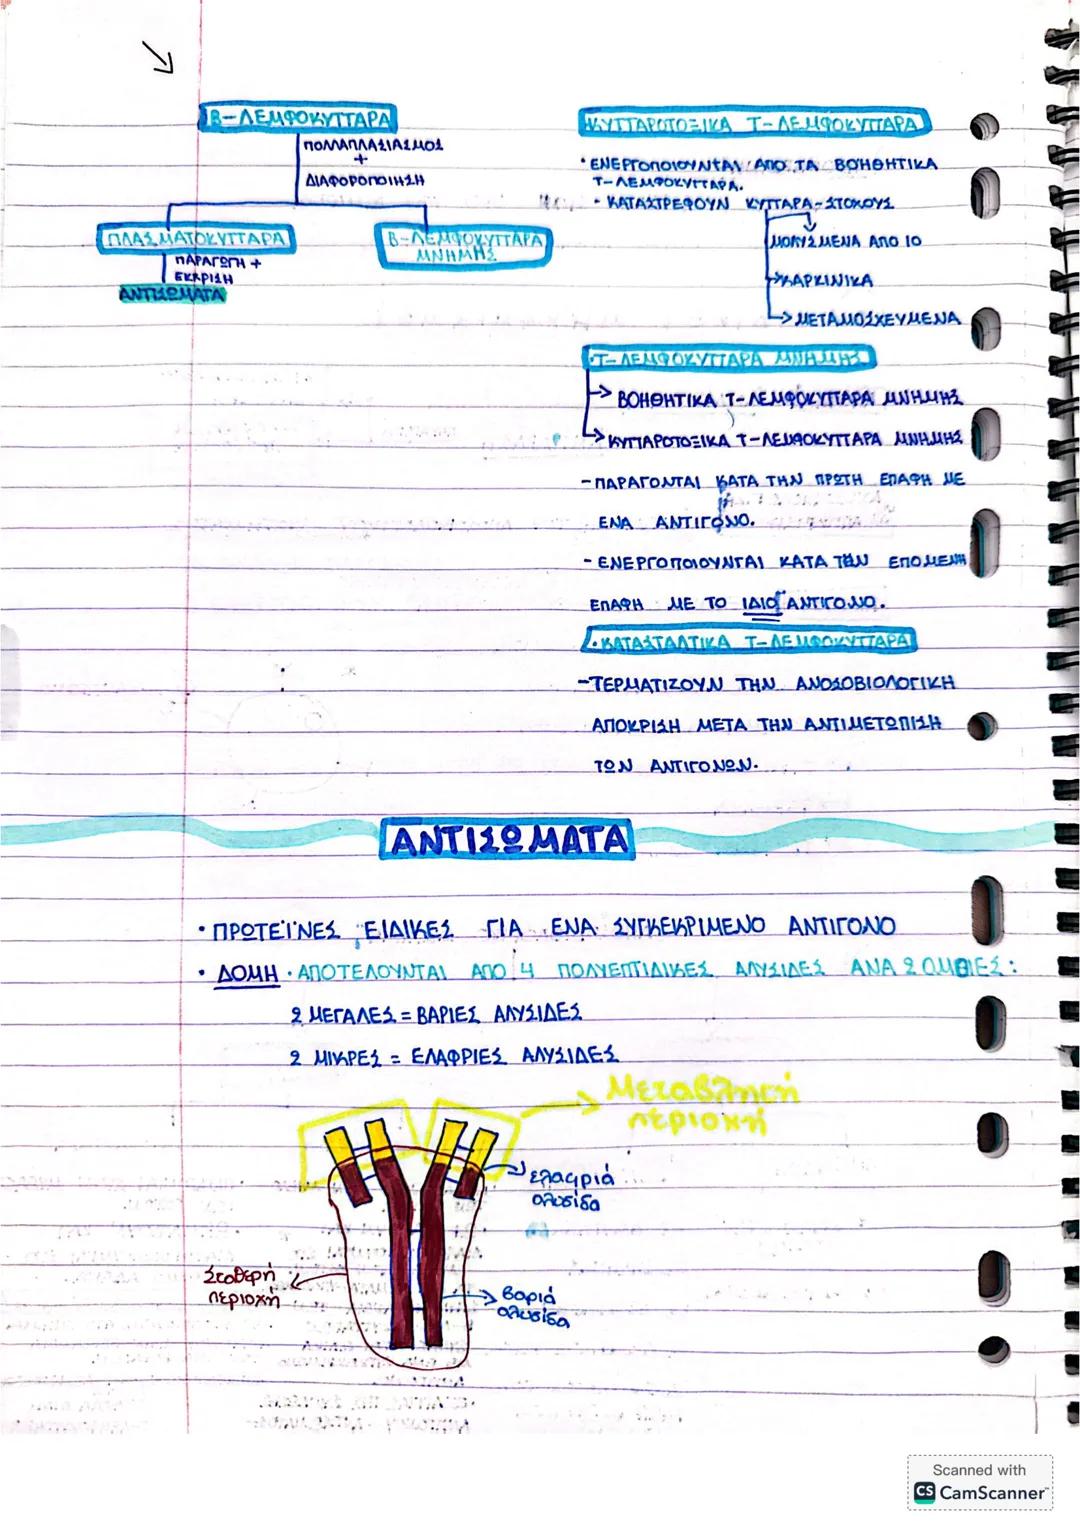 Β-ΛΕΜΦΟΚΥΤΤΑΡΑ
ΠΟΛΛΑΠΛΑΣΙΑΣΜΟΣ
+
ΔΙΑΦΟΡΟΠΟΙΗΣΗ
ΠΛΑΣΜΑΤΟΚΥΤΤΑΡΑ
ΠΑΡΑΓΩΓΗ +
ΕΚΚΡΙΣΗ
ΑΝΤΙΣΩΜΑΤΑ
Β-ΛΕΜΦΟΚΥΤΤΑΡΑ
ΜΝΗΜΗΣ
ΚΥΤΤΑΡΟΤΟΞΙΚΑ Τ-ΛΕΜΦΟΚΥΤΤΑΡΑ
• ΕΝΕΡΓΟΠΟΙΟΥΝΤΑΙ ΑΠΟ ΤΑ ΒΟΗΘΗΤΙΚΑ
Τ-ΛΕΜΦΟΚΥΤΤΑΡΑ.
• ΚΑΤΑΣΤΡΕΦΟΥΝ ΚΥΤΤΑΡΑ-ΣΤΟΧΟΥΣ
ΜΟΛΥΣΜΕΝΑ ΑΠΟ ΙΟ
ΚΑΡΚΙΝΙΚΑ
ΜΕΤΑΜΟΣΧΕΥΜΕΝΑ
• Τ-ΛΕΜΦΟΚΥΤΤΑΡΑ ΜΝΗΜΗΣ
ΒΟΗΘΗΤΙΚΑ Τ-ΛΕΜΦΟΚΥΤΤΑΡΑ ΜΝΗΜΗΣ
ΚΥΤΤΑΡΟΤΟΞΙΚΑ Τ-ΛΕΜΦΟΚΥΤΤΑΡΑ ΜΝΗΜΗΣ
- ΠΑΡΑΓΟΝΤΑΙ ΚΑΤΑ ΤΗΝ ΠΡΩΤΗ ΕΠΑΦΗ ΜΕ
ΕΝΑ ΑΝΤΙΓΟΝΟ.
- ΕΝΕΡΓΟΠΟΙΟΥΝΤΑΙ ΚΑΤΑ ΤΗΝ ΕΠΟΜΕΝΗ
ΕΠΑΦΗ ΜΕ ΤΟ ΙΔΙΟ ΑΝΤΙΓΟΝΟ.
• ΚΑΤΑΣΤΑΛΤΙΚΑ Τ-ΛΕΜΦΟΚΥΤΤΑΡΑ
- ΤΕΡΜΑΤΙΖΟΥΝ ΤΗΝ ΑΝΟΣΟΒΙΟΛΟΓΙΚΗ
ΑΠΟΚΡΙΣΗ ΜΕΤΑ ΤΗΝ ΑΝΤΙΜΕΤΩΠΙΣΗ
ΤΩΝ ΑΝΤΙΓΟΝΩΝ.
ΑΝΤΙΣΩΜΑΤΑ
• ΠΡΩΤΕΪΝΕΣ ΕΙΔΙΚΕΣ ΓΙΑ ΕΝΑ ΣΥΓΚΕΚΡΙΜΕΝΟ ΑΝΤΙΓΟΝΟ
• ΔΟΜΗ • ΑΠΟΤΕΛΟΥΝΤΑΙ ΑΠΟ 4 ΠΟΛΥΕΠΤΙΔΙΚΕΣ ΑΛΥΣΙΔΕΣ ΑΝΑ 2 ΟΜΟΙΕΣ:
2 ΜΕΓΑΛΕΣ = ΒΑΡΙΕΣ ΑΛΥΣΙΔΕΣ
2 ΜΙΚΡΕΣ = ΕΛΑΦΡΙΕΣ ΑΛΥΣΙΔΕΣ
Μεταβλητή
περιοχή
ελαφριά
αλυσίδα
Σταθερή
περιοχή
βαριά
αλυσίδα
Scanned with
CS CamScanner™